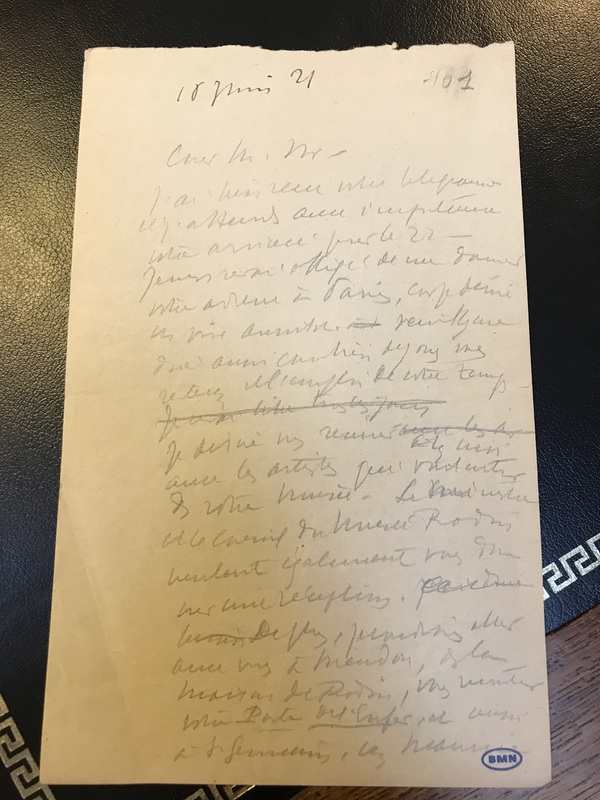 18 Juin 21
801
Cher M.
J'ai bien reçu votre télégramme
et j'attends avec impatience
votre arrivée pour le 22 -
Je vous serai obligé de me donner
votre adresse à Paris, car je désire
vous voir aussitôt
dire aussi combien de jours vous
resterez et l'emploi de votre temps -
Je désire vous réunir avec les
chez moi
avec les artistes
de votre Musée - Le
et le Conseil du Musée Rodin
veulent également vous don
ner une réception.
De plus, je voudrais aller
avec vous à Meudon, à la
maison de Rodin, vous montrer
votre Porte de l'Enfer, et aussi
à St Germain,
BMN